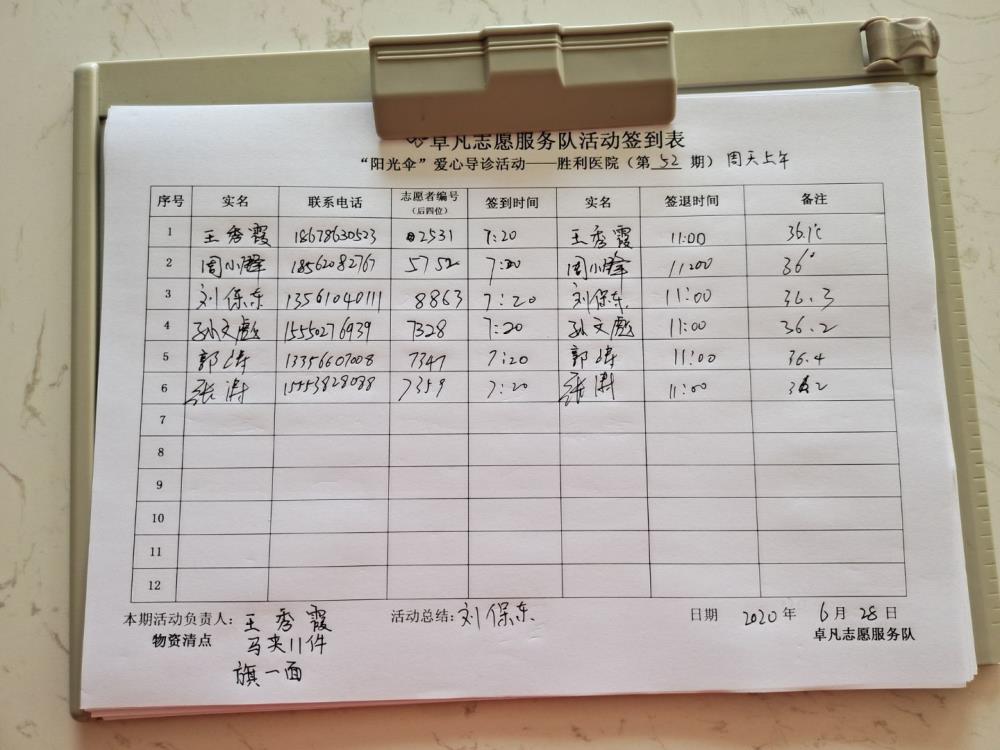 卓凡志愿服务队活动签到表
“阳光伞”爱心导诊活动——胜利医院（第 52 期）周天上午
序号 实名 联系电话 志愿者编号（后四位） 签到时间 实名 签退时间 备注
1 王秀霞 18678630523 2531 7:20 王秀霞 11:00 36.1℃
2 周小峰 18562082767 5752 7:20 周小峰 11:00 36°
3 刘保东 13561040111 8863 7:20 刘保东 11:00 36.3
4 孙文彪 15550276939 7328 7:20 孙文彪 11:00 36.2
5 郭涛 13356607008 7347 7:20 郭涛 11:00 36.4
6 张涛 7359 7:20 张涛 11:00
7
8
9
10
11
12
本期活动负责人：王秀霞 活动总结：刘保东 日期 2020 年 6 月 28 日
物资清点 马夹11件 卓凡志愿服务队
旗一面